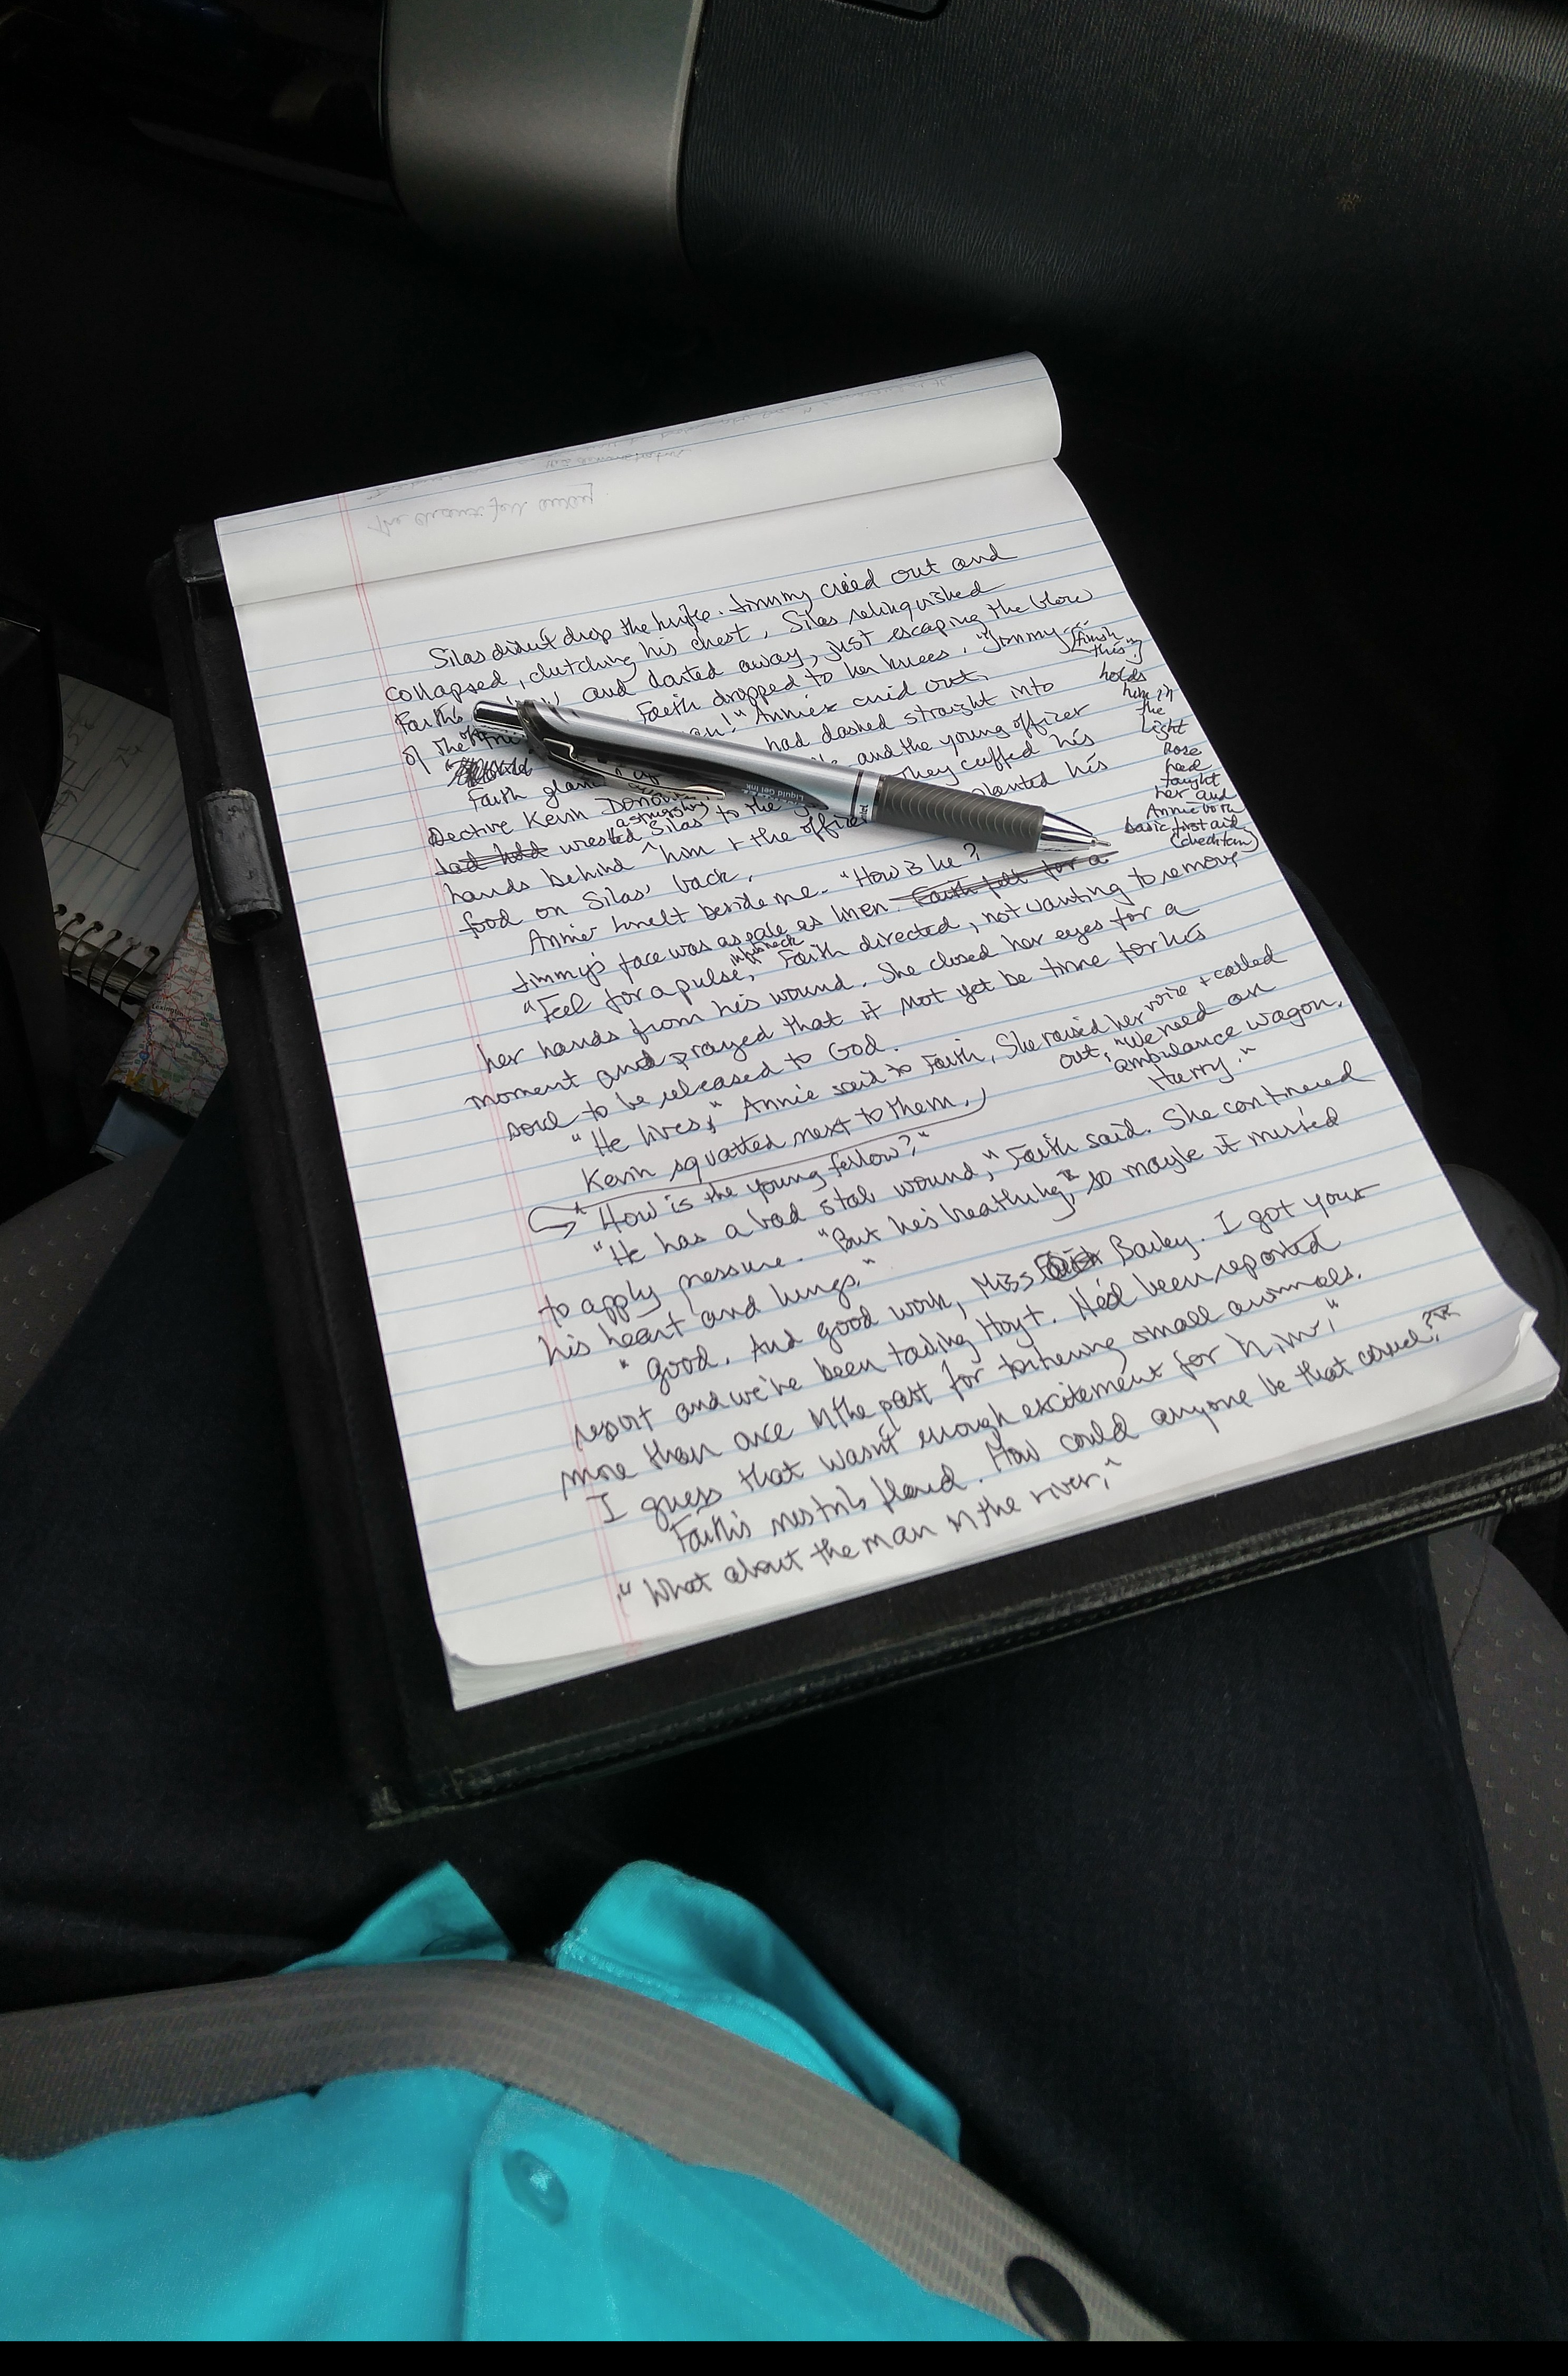 Silas didn't drop the knife. Jimmy cried out and
collapsed, clutching his chest. Silas relinquished
Faith's and darted away, just escaping the blow
of the Faith dropped to her knees. "Jimmy
an!" Annie cried out.
Faith glan had dashed straight into
Dective Kevin Donovan and the young officer
astonishing
had held wrested Silas to the They cuffed his
hands behind him + the officer planted his
food on Silas' back.
Annie knelt beside me. "How is he?
Jimmy's face was as pale as linen. Faith felt for a
in his neck
"Feel for a pulse," Faith directed, not wanting to remove
her hands from his wound. She closed her eyes for a
moment and prayed that it not yet be time for his
soul to be released to God.
"He lives," Annie said to Faith. She raised her voice + called
out, "We need an
ambulance wagon.
Hurry."
Kevin squatted next to them.
"How is the young fellow?"
"He has a bad stab wound," Faith said. She continued
to apply pressure. "But he's breathing, so maybe it missed
his heart and lungs."
"Good. And good work, Miss Bailey. I got your
report and we've been tailing Hoyt. He'd been reported
more than once in the past for torturing small animals.
I guess that wasn't enough excitement for him."
Faith's nostrils flared. How could anyone be that cruel?
"What about the man in the river,"
(finish
this)
holds
him in
the
light
Rose
had
taught
her and
Annie both
basic first aid
(check term)
Liquid gel ink
Lexington